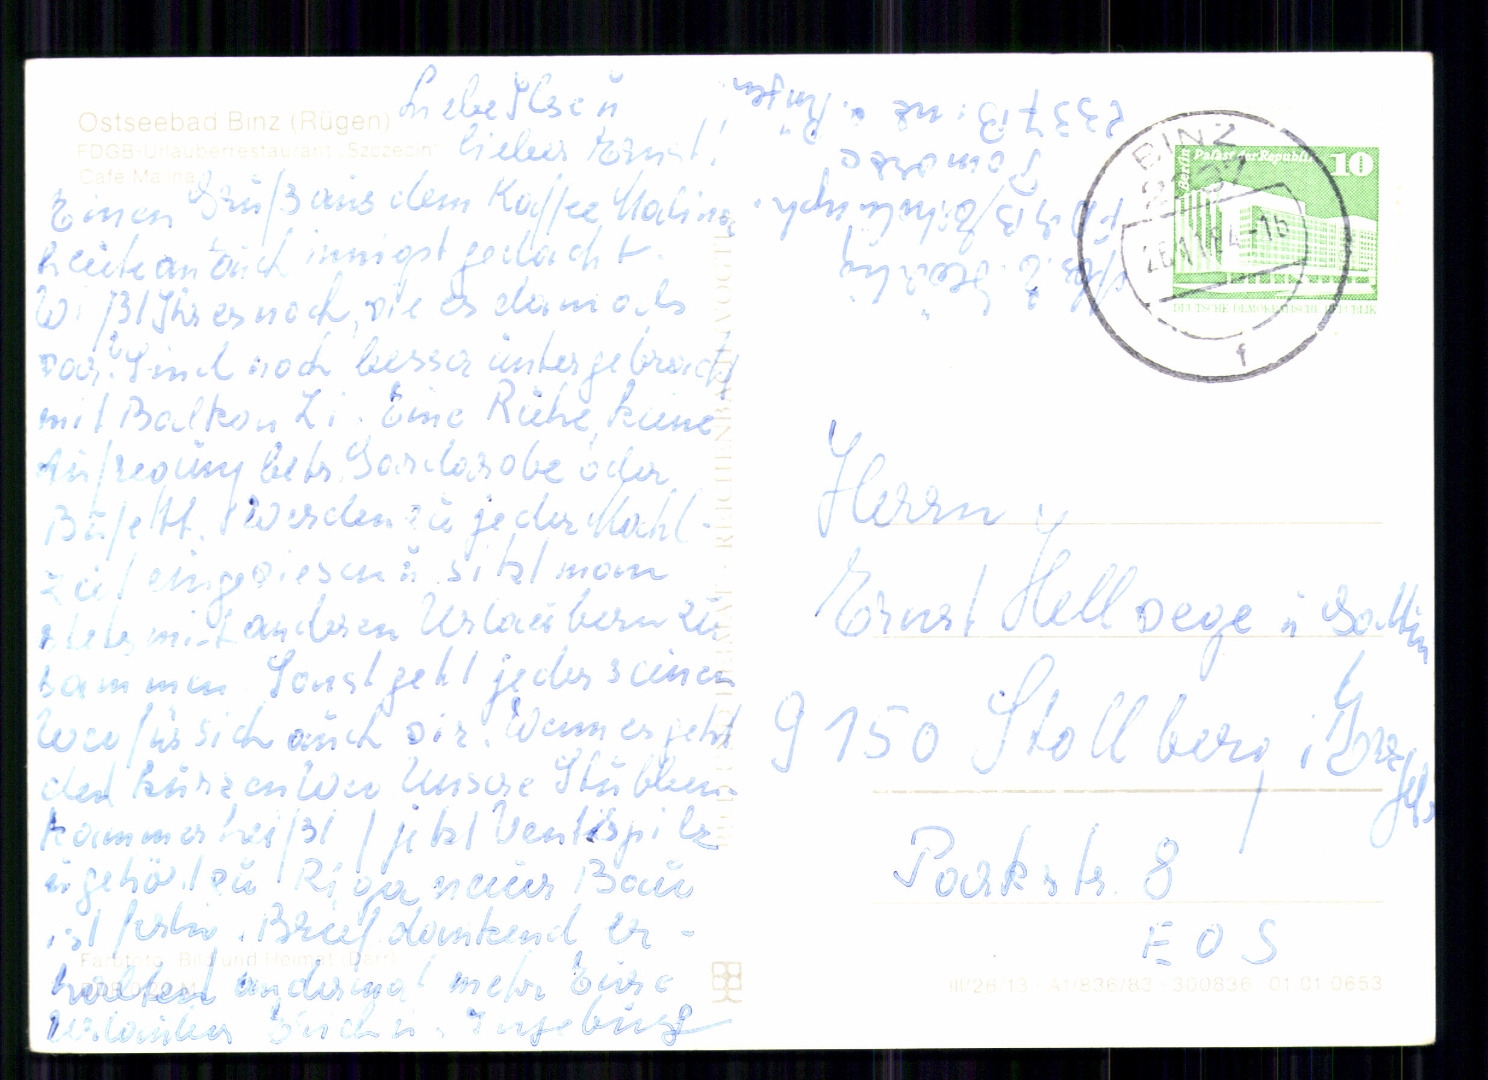 Ostseebad Binz (Rügen)
FDGB-Urlauberrestaurant „Szczecin“
Café Malina
Liebe Ilse u
lieber Ernst!
Einen Gruß aus dem Kaffee Malina
heute an Euch innigst gedacht.
Wißt Ihr es noch, wie es damals
war? Sind noch besser untergebracht
mit Balkon Zi. Eine Ruhe, keine
Aufregung betr. Garderobe oder
Büfett. Werden zu jeder Mahl-
zeit eingewiesen u. sitzt man
stets mit anderen Urlaubern zu
sammen. Sonst geht jeder seinen
Weg für sich auch wir. Wenn es geht
den kurzen Weg Unsere Stubben-
kammer heißt jetzt Ventspils
u gehört zu Riga neuer Bau
ist fertig. Brief dankend er-
halten andermal mehr Eure
Urlauber Erich u. Ingeburg
Farbfoto: Bild und Heimat
BILD UND HEIMAT · REICHENBACH (VOGTL)
FDGB/Erholungsh.
2337 Binz a. Rügen
BINZ
2337
f
Berlin Palast der Republik
10
DEUTSCHE DEMOKRATISCHE REPUBLIK
Herrn
Ernst Hellwege u Gattin
9150 Stollberg i/Erzgeb
Parkstr. 8
EOS
III/26/13 · A1/836/83 · 300836 01 01 0653